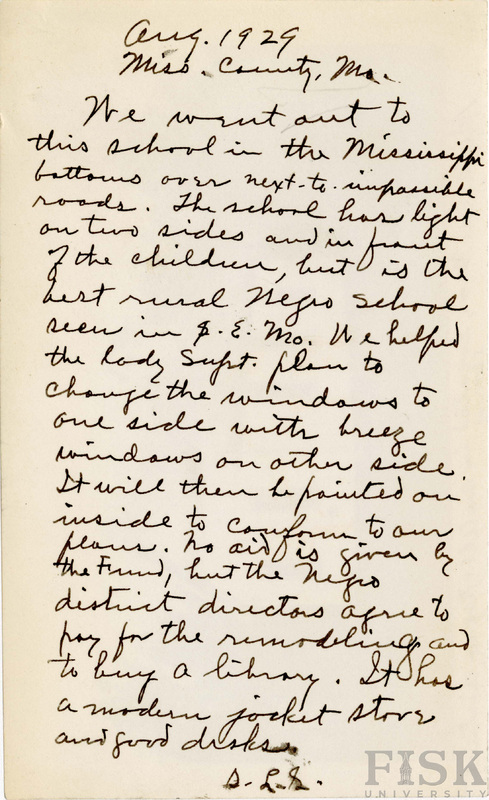 Aug. 1929
Miss. County, Mo.
We went out to
this school in the Mississippi
bottoms over next-to-impassible
roads. The school has light
on two sides and in front
of the children, but is the
best rural Negro School
seen in S. E. Mo. We helped
the lady Supt. plan to
change the windows to
one side with breeze
windows on other side.
It will then be painted on
inside to conform to our
plans. No aid is given by
the Fund, but the Negro
district directors agree to
pay for the remodeling and
to buy a library. It has
a modern jacket stove
and good desks.
S. L. S.
FISK
UNIVERSITY